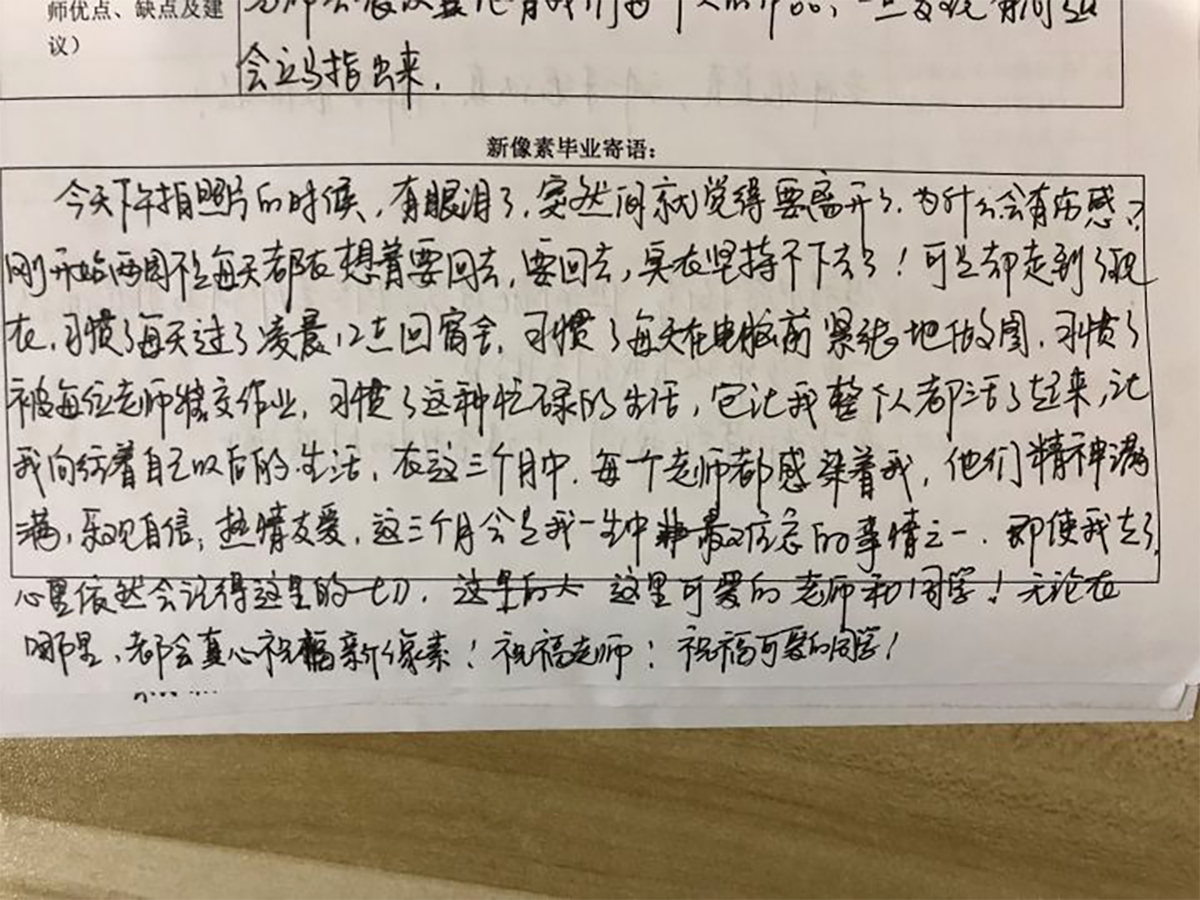 师优点、缺点及建
议）
会立马指出来.
新像素毕业寄语：
今天下午拍照片的时候，有眼泪了，突然间就觉得要离开了.为什么会有伤感？
刚开始两周不是每天都在想着要回去，要回去，真在坚持不下去了！可是却走到了现
在，习惯了每天过了凌晨12点回宿舍，习惯了每天在电脑前紧张地做图，习惯了
被每位老师催交作业，习惯了这种忙碌的生活，它让我整个人都活了起来，让
我向往着自己以后的生活，在这三个月中，每个老师都感染着我，他们精神满
满，乐观自信，热情友爱，这三个月会是我一生中最难忘的事情之一.即使我走了，
心里依然会记得这里的一切.这里的 这里可爱的老师和同学！无论在
哪里，都会真心祝福新像素！祝福老师！祝福可爱的同学！